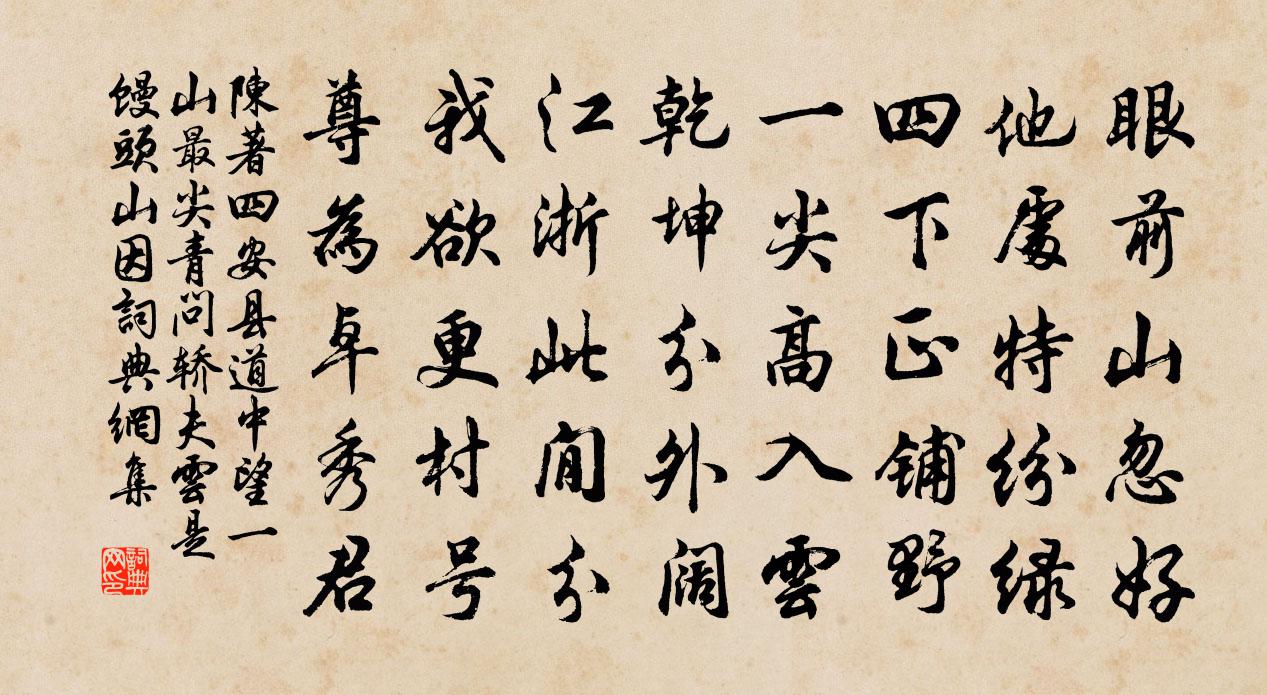 眼前山忽好
他處特紛緑
四下正铺野
一尖高入雲
乾坤分外阔
江浙此间分
我欲更村号
尊為卓秀君
陳著四安县道中望一
山最尖青问轿夫雲是
馒頭山因詞典網集
詞典
网印